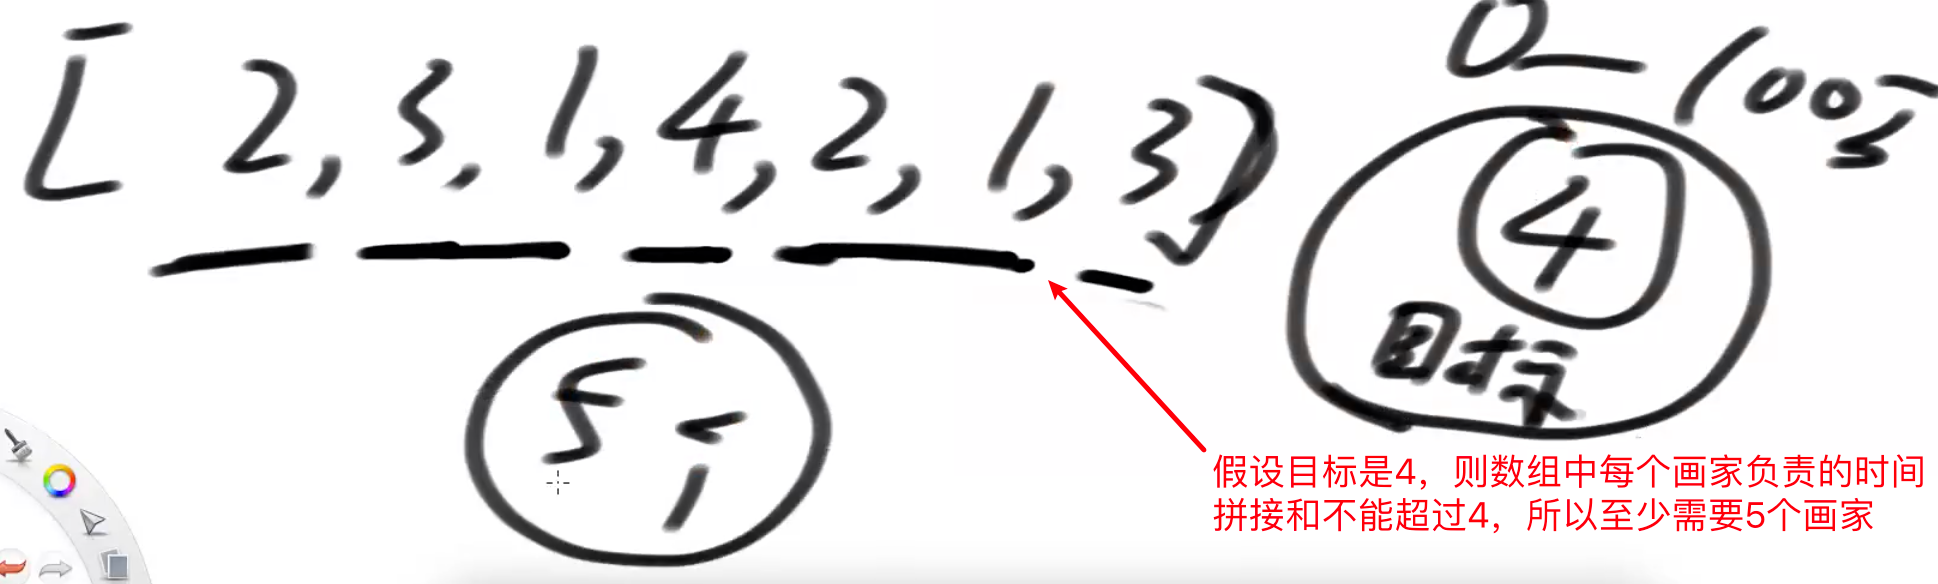 [2,3,1,4,2,1,3]
0—100万
4
目标
5个
假设目标是4，则数组中每个画家负责的时间
拼接和不能超过4，所以至少需要5个画家